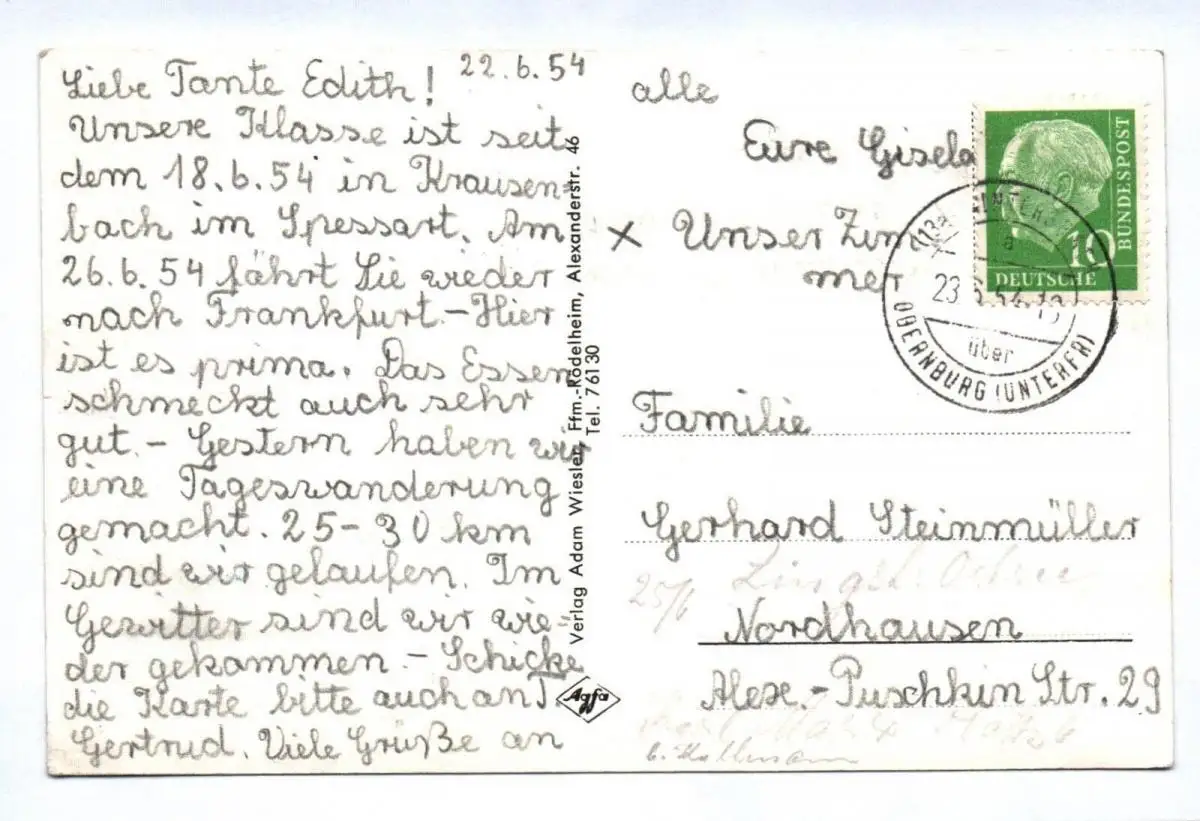 22.6.54
Liebe Tante Edith!
Unsere Klasse ist seit
dem 18.6.54 in Krausen=
bach im Spessart. Am
26.6.54 fährt Sie wieder
nach Frankfurt.-Hier
ist es prima. Das Essen
schmeckt auch sehr
gut. - Gestern haben wir
eine Tageswanderung
gemacht. 25-30 km
sind wir gelaufen. Im
Gewitter sind wir wie=
der gekommen. - Schicke
die Karte bitte auch an
Gertrud. Viele Grüße an
alle
Eure Gisela
x Unser Zim
mer
Verlag Adam Wiesler, Ffm.-Rödelheim, Alexanderstr. 46
Tel. 76130
Agfa
DEUTSCHE
BUNDESPOST
10
a
23
54
über
OBERNBURG (UNTERFR)
Familie
Gerhard Steinmüller
25/6
Nordhausen
Alex.-Puschkin Str. 29